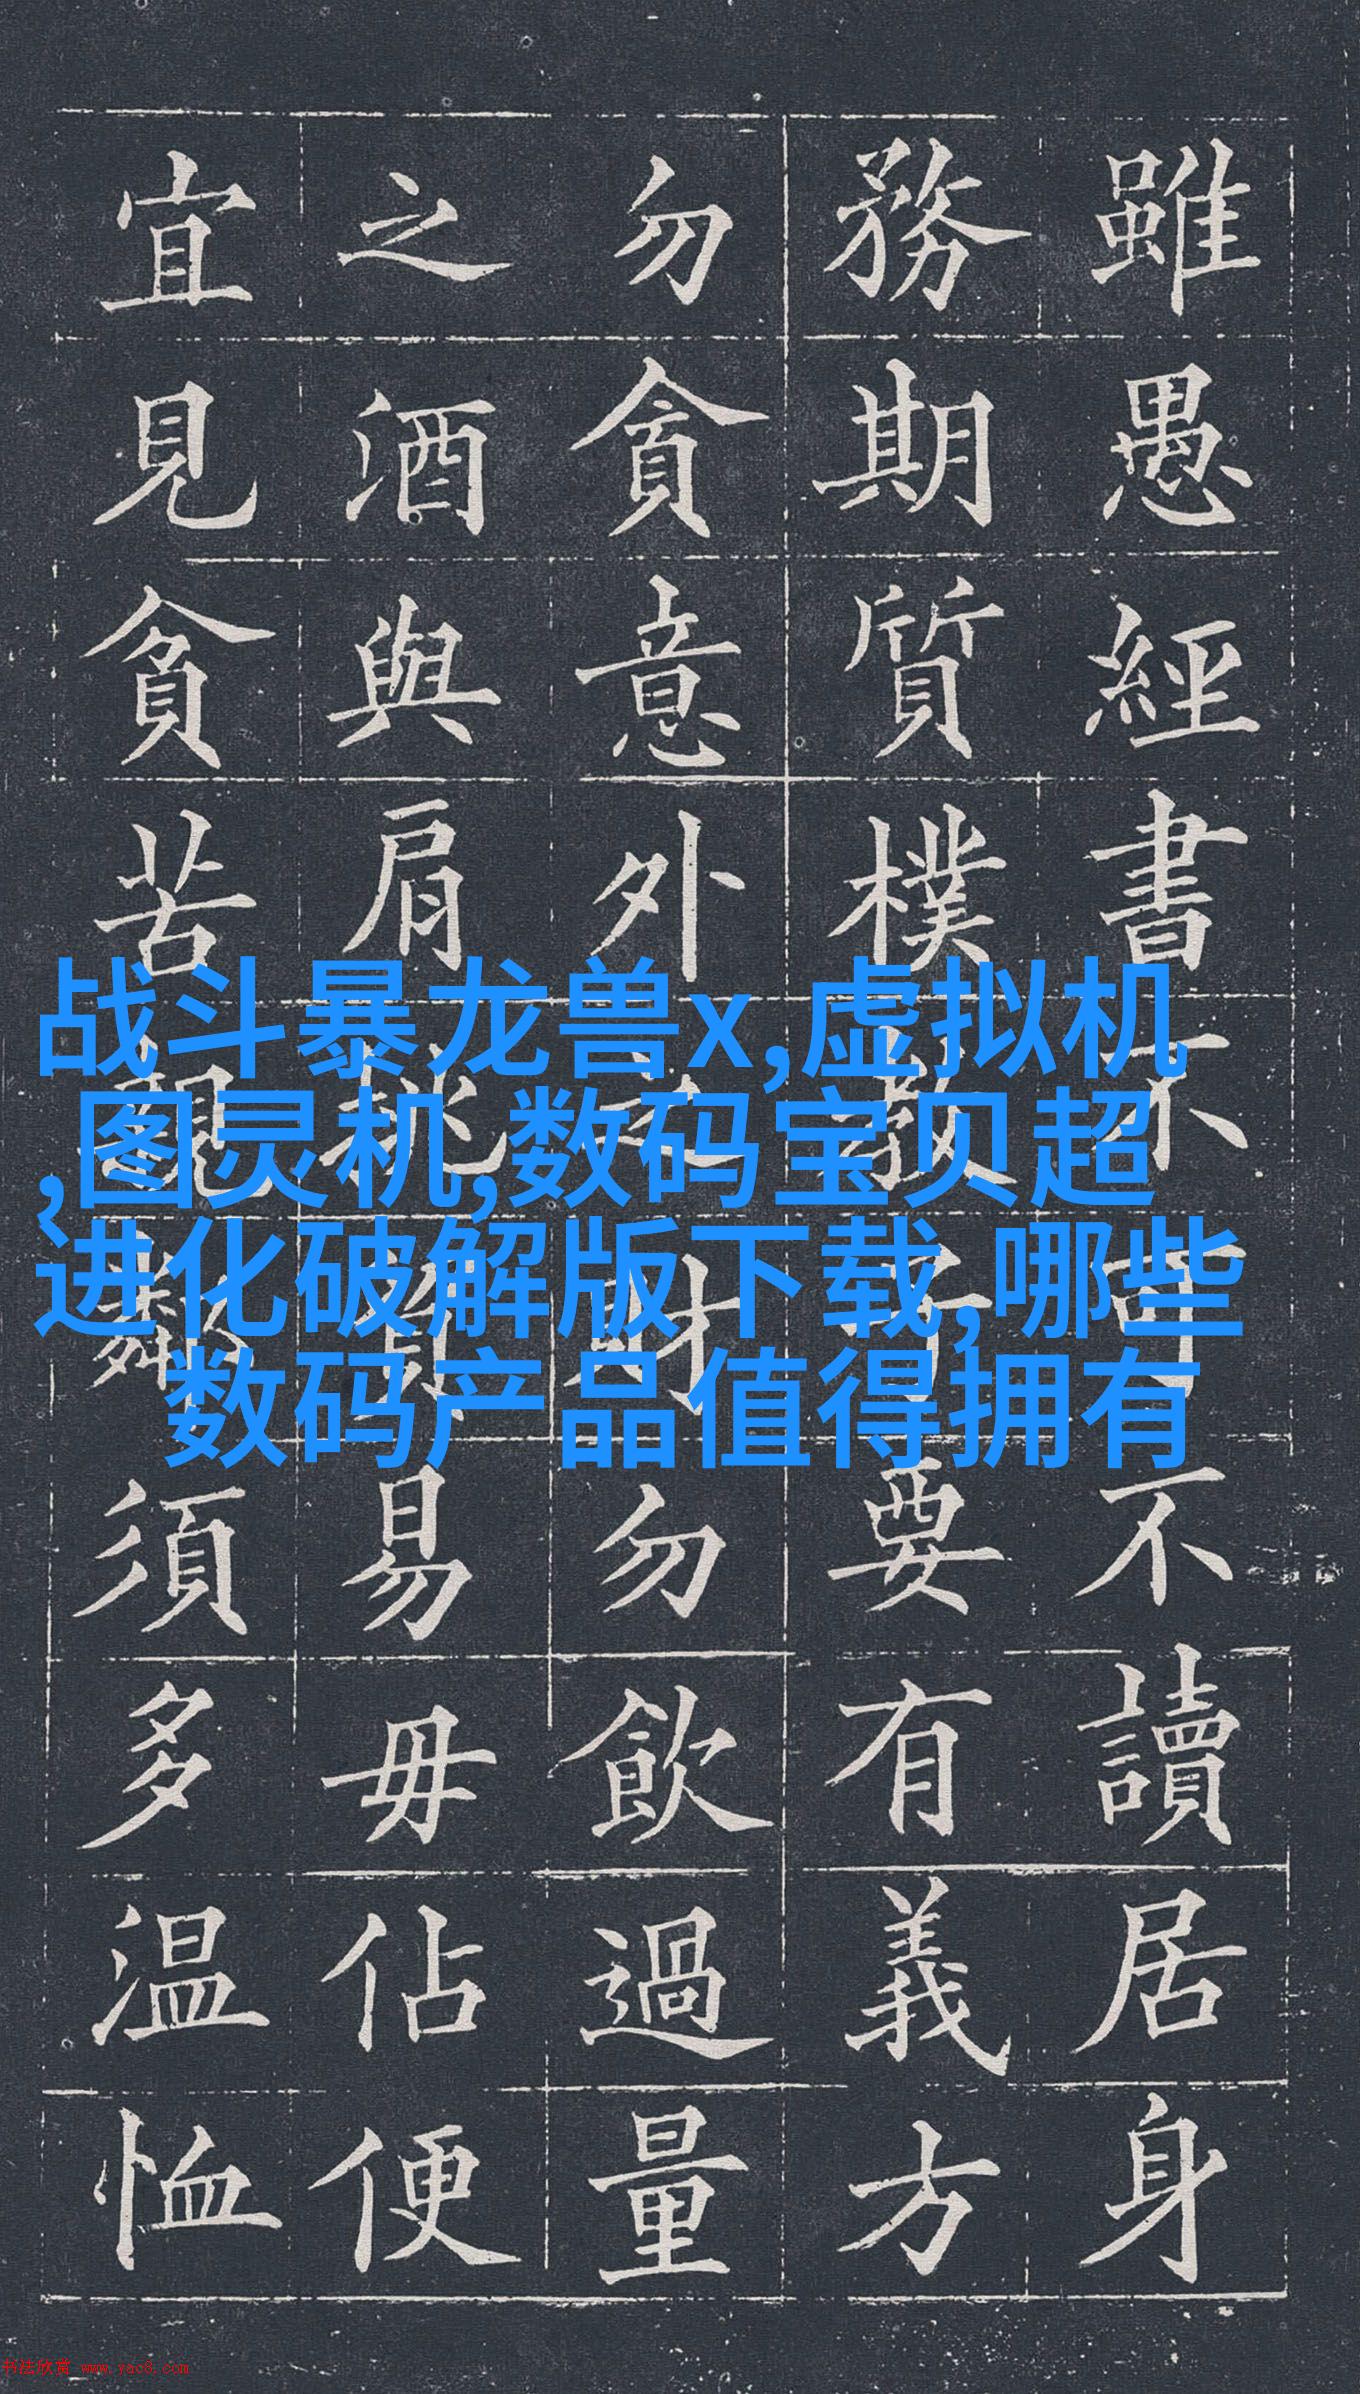 雖愚經書不可不讀居身
務期質樸教子要有義方
勿貪意外之財勿飲過量
之酒與肩挑貿易毋佔便
宜見貧苦親鄰須多温恤
战斗暴龙兽x,虚拟机
,图灵机,数码宝贝超
进化破解版下载,哪些
数码产品值得拥有
书法欣赏 www.yac8.com